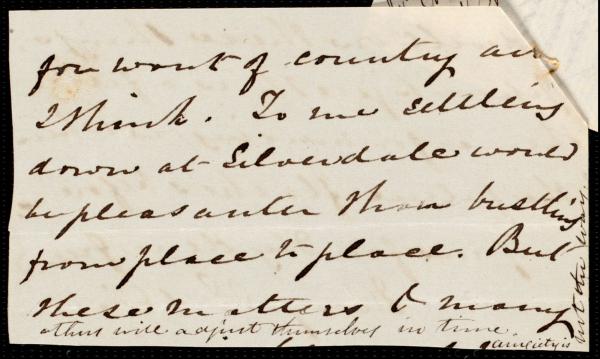 for want of country air
I think. To me settling
down at Silverdale would
be pleasanter than bustling
from place to place. But
these matters & many
others will adjust themselves in time.
anxiety is
not the way